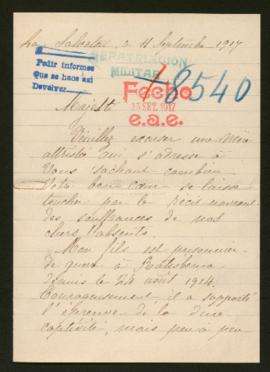 San Salvador, 11 Septembre 1917
REPATRIACION
MILITAR
Pedir informes
Que se hace así
Devolver
Fecho
13 SET. 1917
e.a.e.
18540
Majesté
Veuillez excuser une Mère
attristée qui s'adresse à
Vous sachant combien
Votre bon cœur se laisse
toucher par le récit navrant
des souffrances de nos
chers absents.
Mon fils est prisonnier
de guerre à Ratisbonne
depuis le 24 août 1914.
Courageusement il a supporté
l'épreuve de la dure
captivité, mais peu à peu